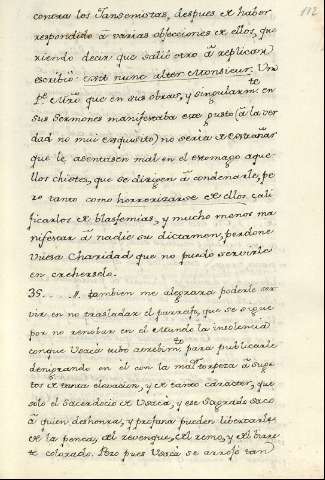 112
contra los Jansenistas, despues de haber
respondido à varias objecciones de ellos, que
riendo decir que salió otro à replicar,
escribió: exit nunc alter Monsieur. Un
Pe. Mro. que en sus obras, y singularmte. en
sus Sermones manifestaba este gusto (à la ver
dad ni mui exquisito) no seria de estrañar
que le asentasen mal en el estomago aque
llos chistes, que se dirigen à condenarle, pe
ro tanto como horrorizarse de ellos, cali
ficarlos de blasfemias, y mucho menos ma
nifestar à nadie su dictamen, perdone
Vuesa Charidad que no puedo servirle
en creherselo.
35. tambien me alegrara poderle ser
vir en no trasladar el parrafo, que se sigue
por no renobar en el Mundo la insolencia
conque Usacé tubo atrebimto. para publicarle
denigrando en el con la maior torpeza à Suge
tos de tanta elevacion, y de tanto carácter, que
solo el Sacerdocio de Usacé, y ese Sagrado Saco
à quien deshonra, y profana pueden libertarle
de la penca, del revenque, del remo, y del birre
te colorado. Pero pues Usacé se arrojó tan